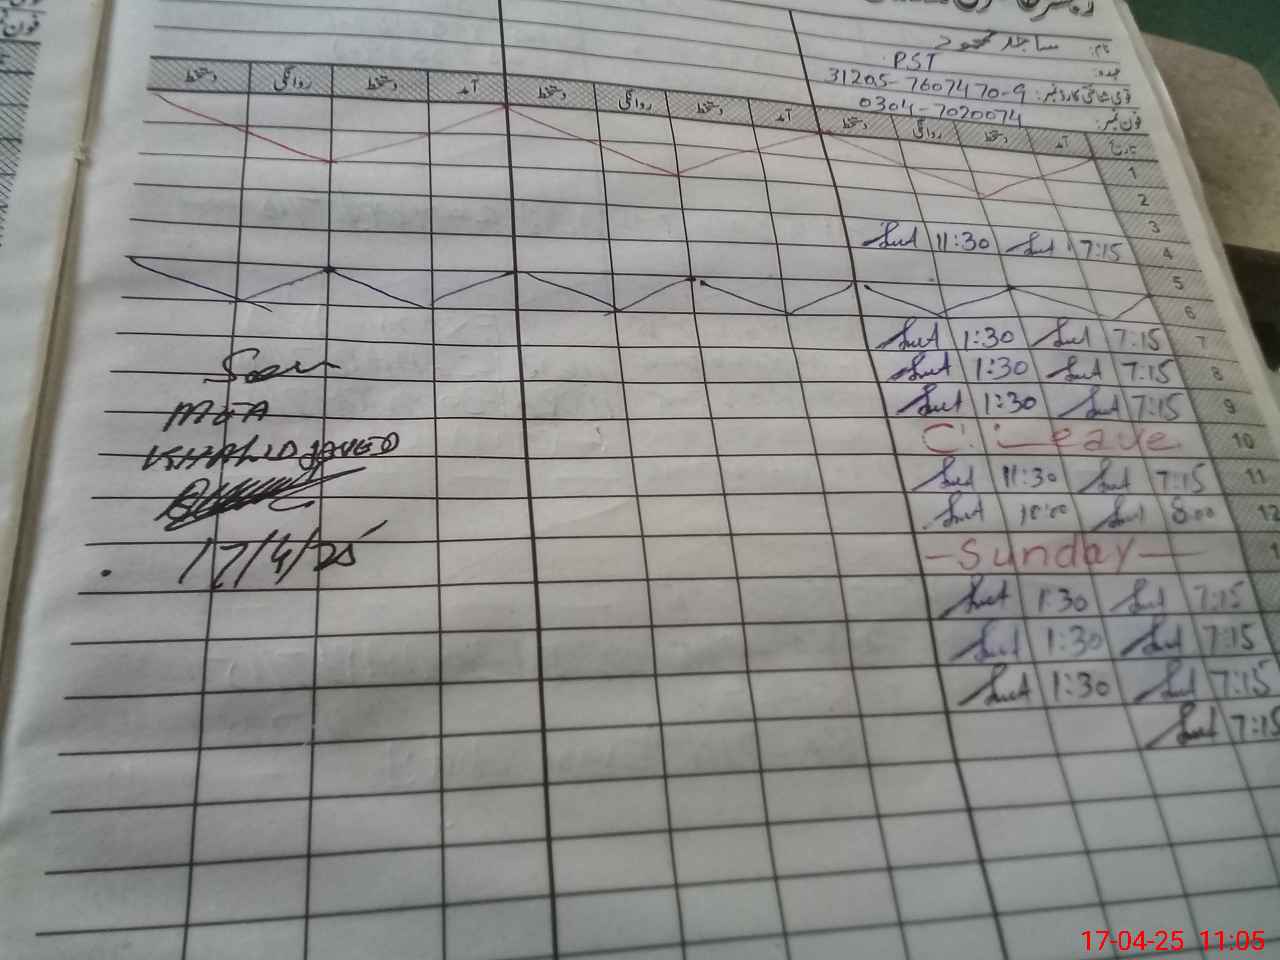 نام: ساجد محمود
عہدہ: PST
قومی شناختی کارڈ نمبر: 31205-7607470-9
فون نمبر: 0304-7020074
تاریخ آمد دستخط روانگی دستخط آمد دستخط روانگی دستخط آمد دستخط روانگی دستخط
1
2
3
4 7:15 11:30
5
6
7 7:15 1:30
8 7:15 1:30
9 7:15 1:30
10 C. Leave
11 7:15 11:30
12 8:00 10:00
1 - Sunday -
7:15 1:30
7:15 1:30
7:15 1:30
7:15
Seen
MEA
KHALID JAVED
17/4/25
17-04-25 11:05